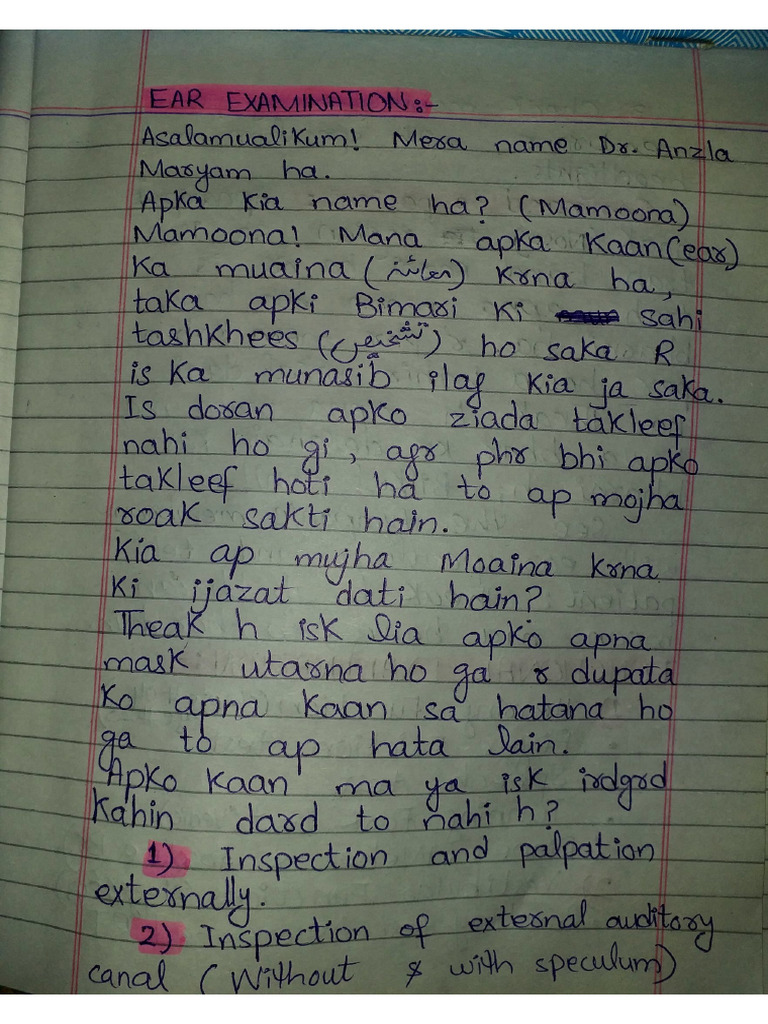 EAR EXAMINATION:-
Asalamualikum! Mera name Dr. Anzla
Maryam ha.
Apka kia name ha? (Mamoona)
Mamoona! Mana apka Kaan(ear)
Ka muaina (معائنہ) Krna ha,
taka apki Bimari Ki sahi
tashkhees (تشخیص) ho saka R
is Ka munasib ilaj Kia ja saka.
Is doran apko ziada takleef
nahi ho gi, agr phr bhi apko
takleef hoti ha to ap mojha
roak sakti hain.
Kia ap mujha Moaina Krna
Ki ijazat dati hain?
Theak h isk lia apko apna
mask utarna ho ga r dupata
Ko apna Kaan sa hatana ho
ga to ap hata lain.
Apko Kaan ma ya isk irdgrd
Kahin dard to nahi h?
1) Inspection and palpation
externally.
2) Inspection of external auditory
canal (Without & with speculum)